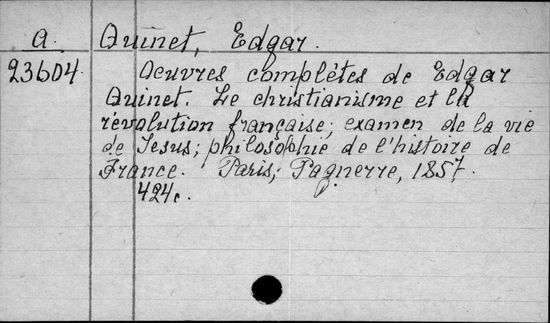 a. Quinet, Edgar.
23604. Oeuvres complètes de Edgar
Quinet. Le christianisme et la
révolution française; examen de la vie
de Jesus; philosophie de l'histoire de
France. Paris, Pagnerre, 1857.
424c.